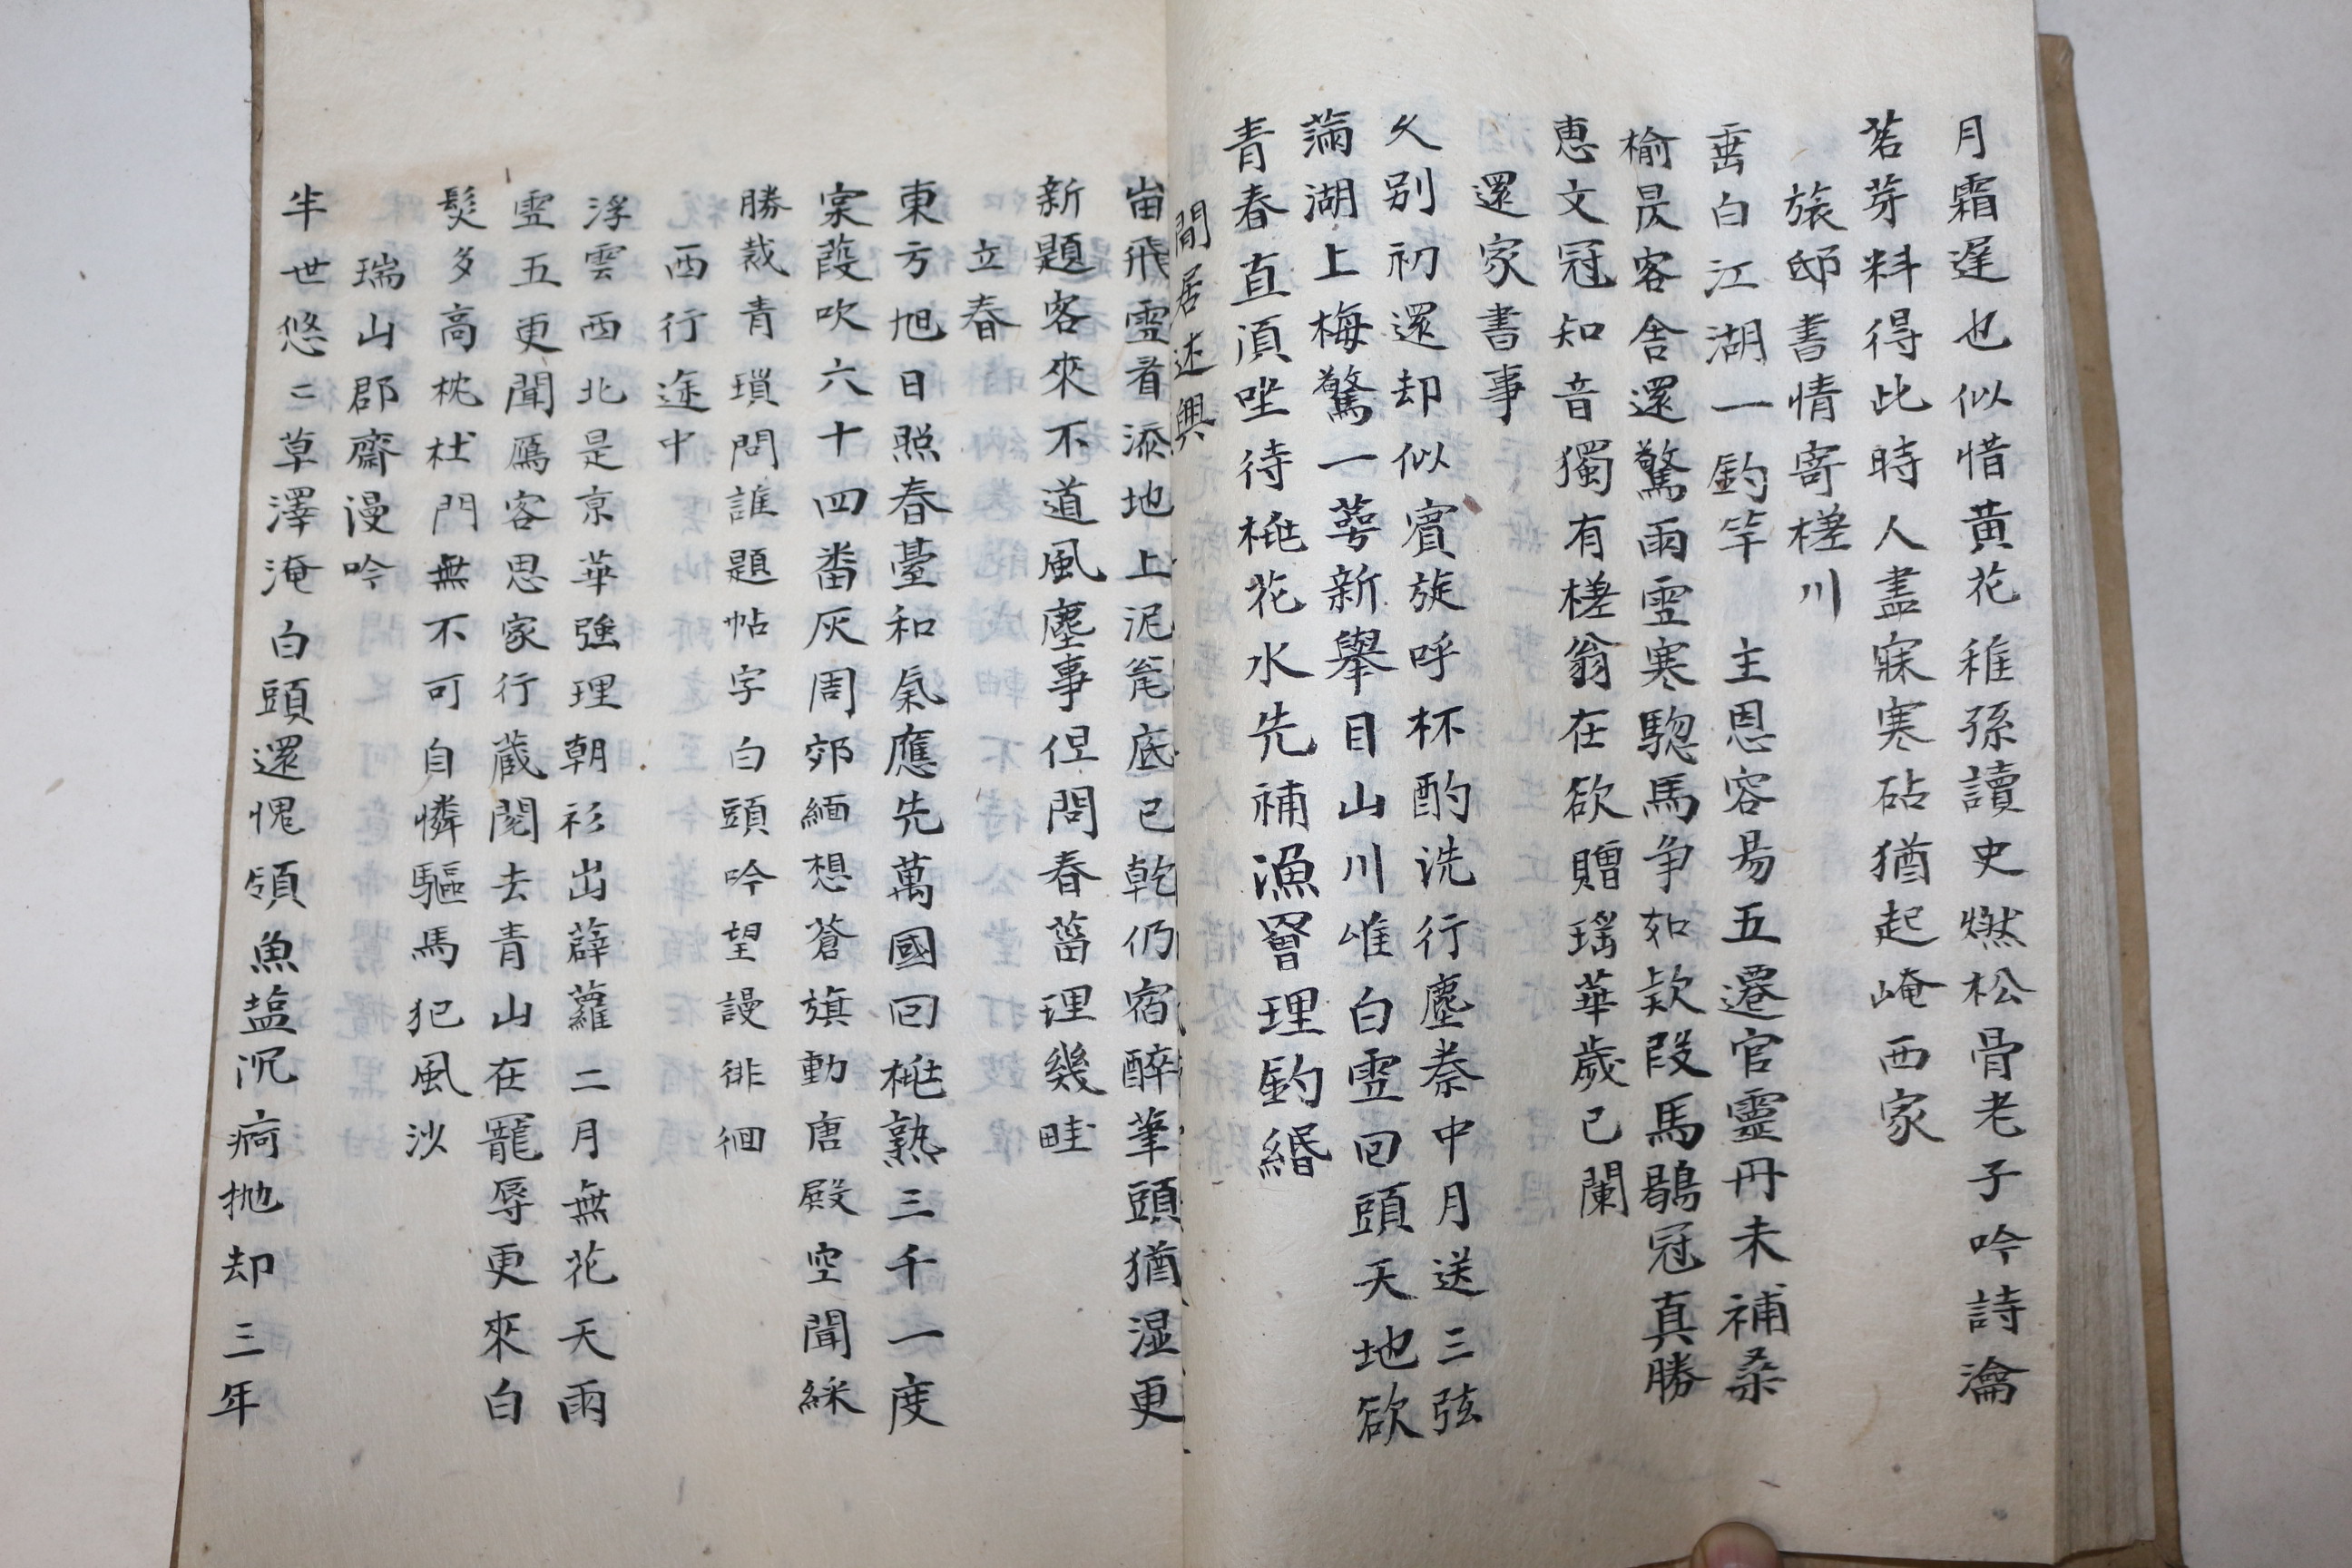 月霜遲也似惜黃花稚孫讀史燃松骨老子吟詩瀹
茗芽料得此時人盡寐寒砧猶起崦西家
旅邸書情寄槎川
垂白江湖一釣竿　主恩容易五遷官靈丹未補桑
榆景客舍還驚雨雪寒驄馬爭如款段馬鶡冠真勝
惠文冠知音獨有槎翁在欲贈瑤華歲已闌
還家書事
久別初還却似賓旋呼杯酌洗行塵秦中月送三弦
滿湖上梅驚一萼新舉目山川惟白雪回頭天地欲
青春直須坐待桃花水先補漁罾理釣緡
閒居述興
出飛雪看添地上泥瓮底已乾仍宿醉筆頭猶湿更
新題客來不道風塵事但問春菑理幾畦
立春
東方旭日照春臺和氣應先萬國回桃熟三千一度
寀葭吹六十四畨灰周郊緬想蒼旗動唐殿空聞綵
勝裁青瑣問誰題帖字白頭吟望謾徘徊
西行途中
浮雲西北是京華強理朝衫出薜蘿二月無花天雨
雪五更聞鴈客思家行蔵閱去青山在寵辱更來白
髮多高枕杜門無不可自憐驅馬犯風沙
瑞山郡齋漫吟
半世悠〻草澤淹白頭還愧領魚塩沉痾抛却三年